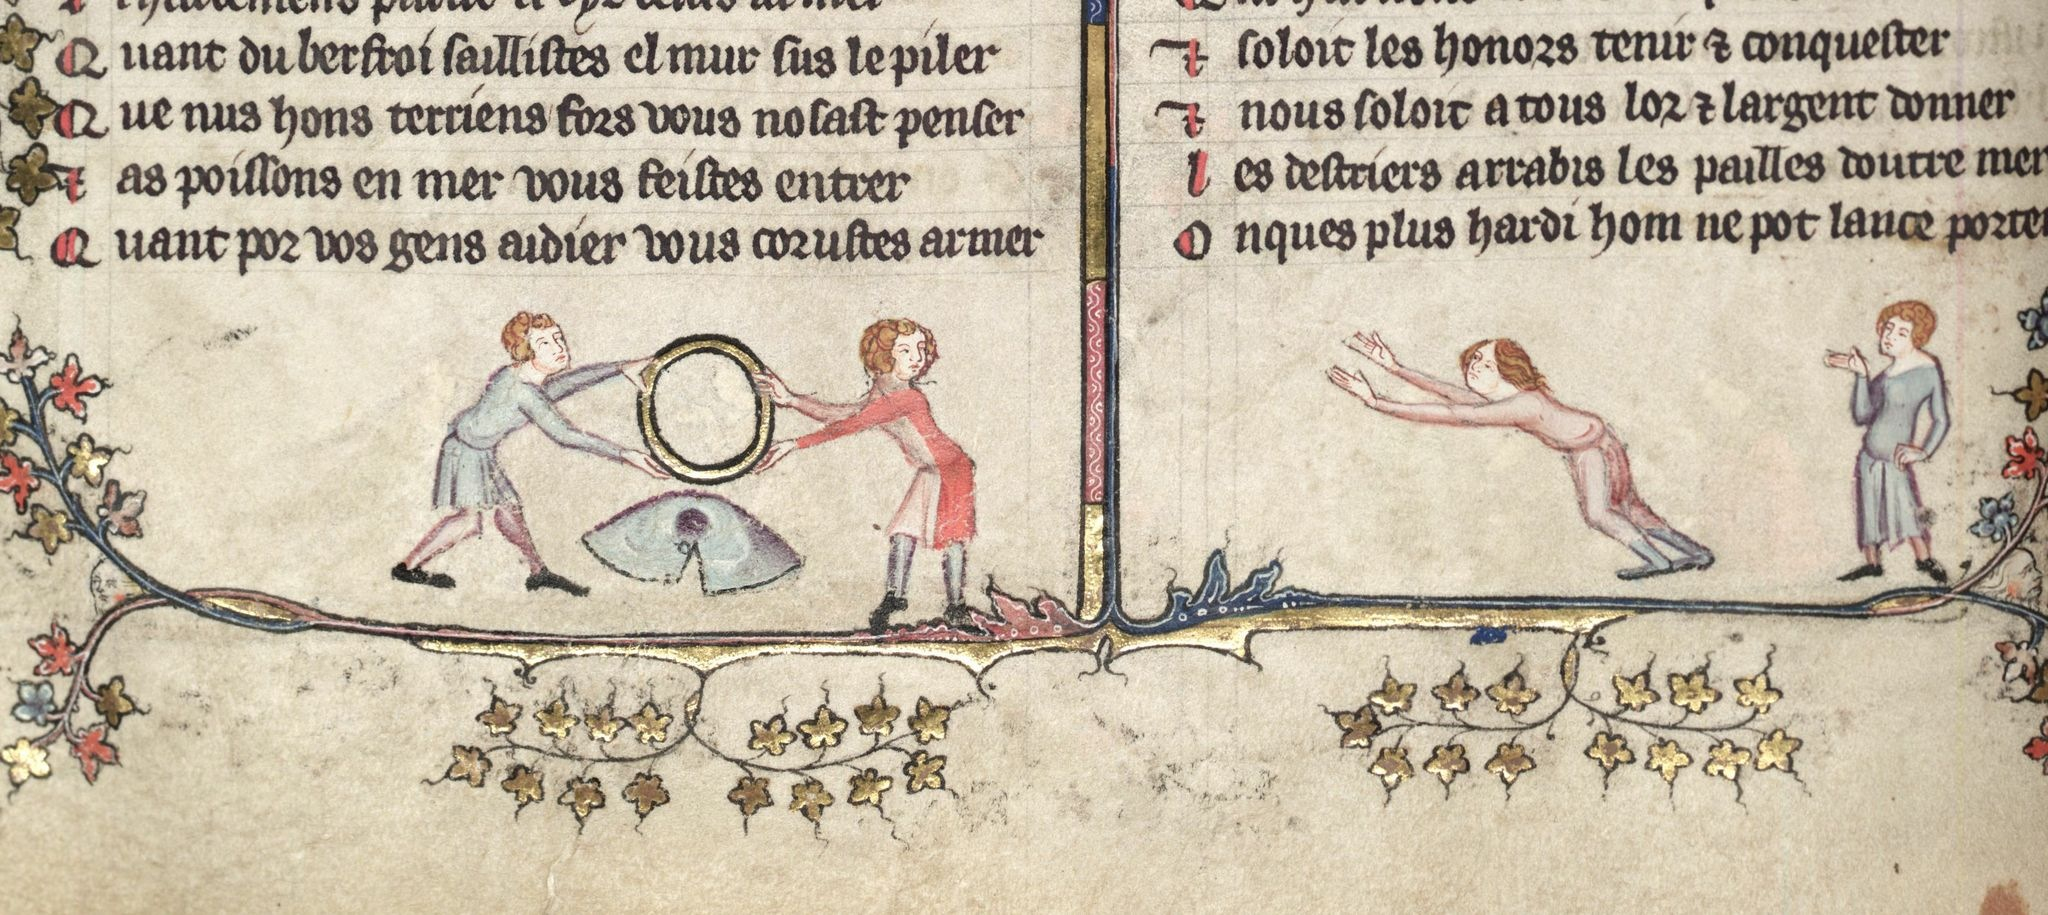 Quant du berfroi saillistes el mur sus le piler
Que nus hons terriens fors vous nosast penser
⁊ as poissons en mer vous feistes entrer
Quant por vos gens aidier vous corustes armer
⁊ soloit les honors tenir ⁊ conquester
⁊ nous soloit a tous lor ⁊ largent donner
les destriers arrabis les pailles doutre mer
Onques plus hardi hom ne pot lance porter